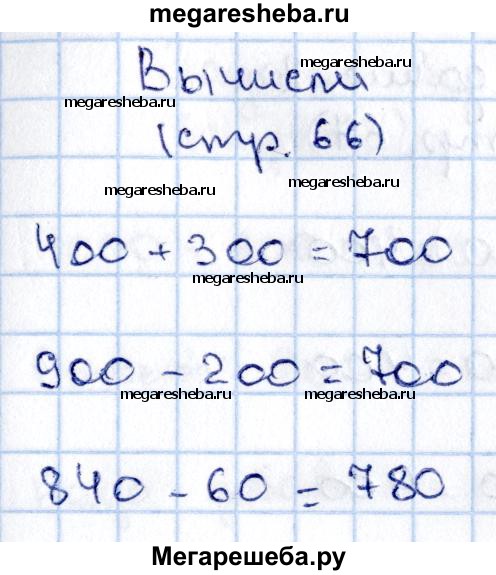 megaresheba.ru
Вычисли
megaresheba.ru
megaresheba.ru
(стр. 66)
megaresheba.ru
megaresheba.ru
400 + 300 = 700
megaresheba.ru
900 - 200 = 700
megaresheba.ru
megaresheba.ru
840 - 60 = 780
Мегарешеба.ру